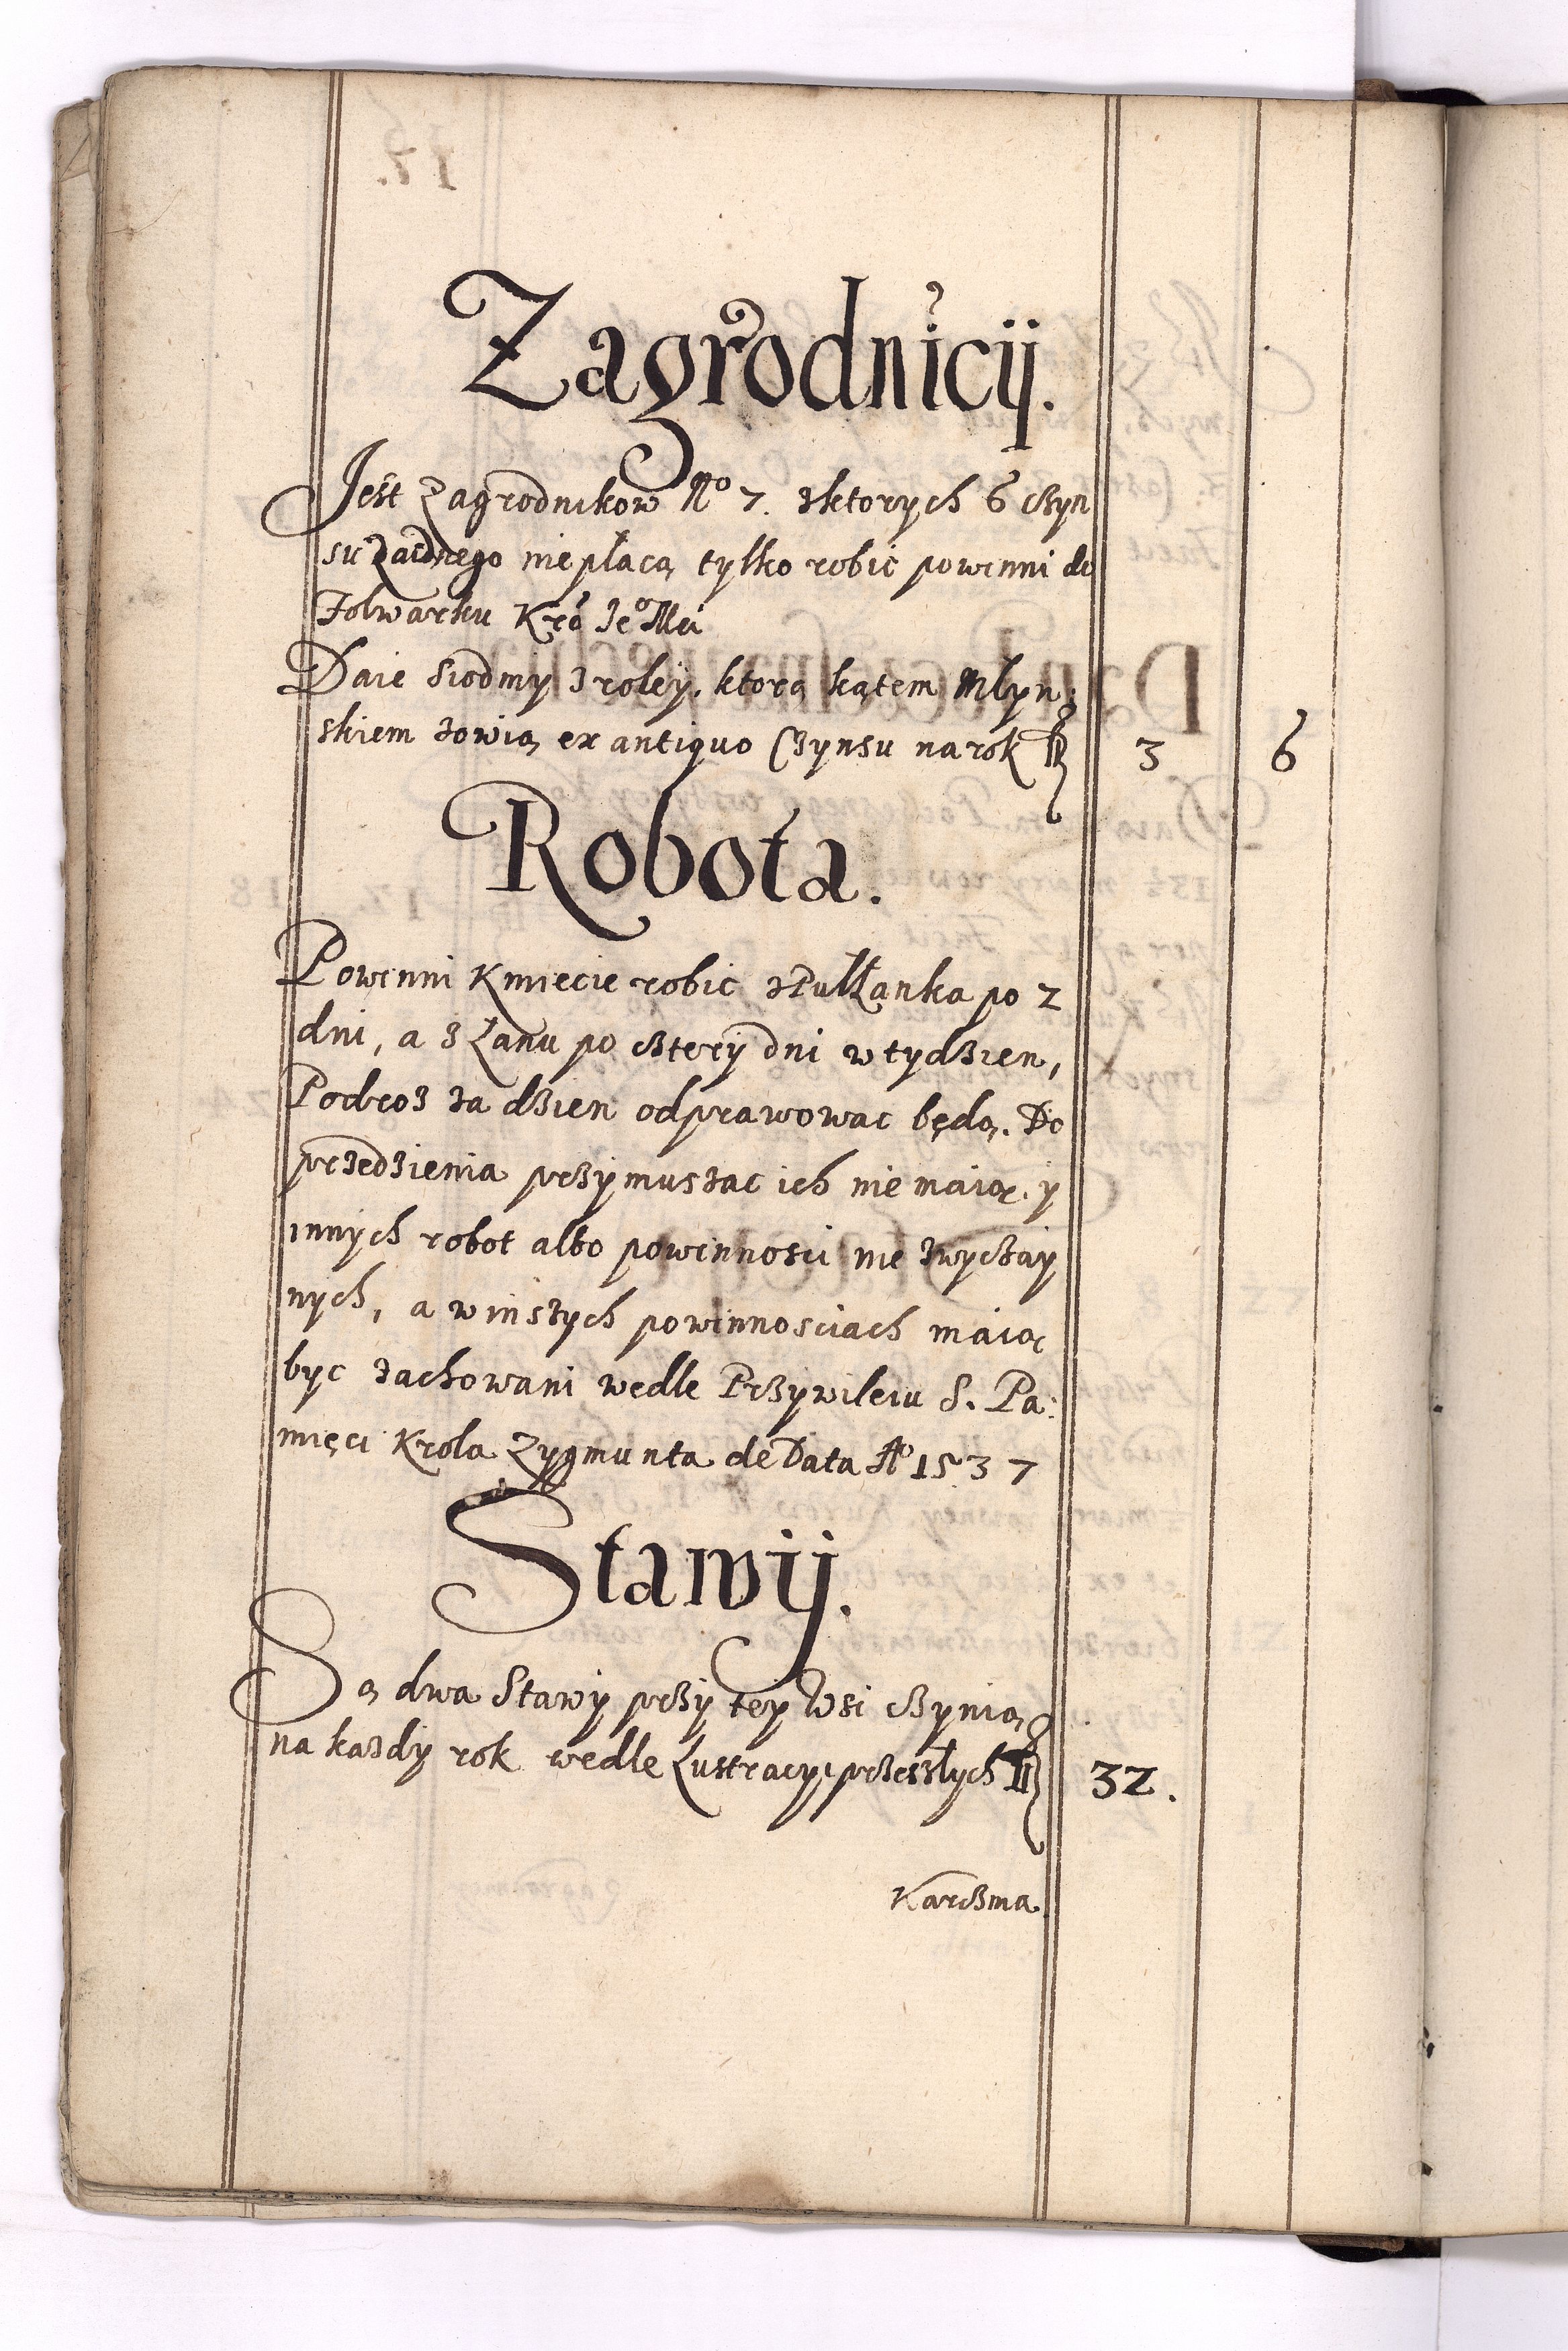 Zagrodnicÿ.
Jest Zagrodnikow No 7. zktorych 6 czyn
su zadnego nie płacą tylko robic powinni do
Folwarku Kro Jeo Mci
Daie siodmy z roley, ktorą kątem Młyn:
skiem zowią ex antiquo Czynsu na rok fl 3 6
Robota.
Powinni Kmiecie robic z Pułłanka po 2
dni, a z Łanu po cztery dni w tydzien,
Podroz za dzien odprawowac będą. Do
przedzienia przymuszac ich nie maią. y
innych robot albo powinnosci nie zwyczay
nych, a w inszych powinnosciach maią
byc zachowani wedle Przywileiu S. Pa:
mięci Krola Zygmunta de Data Ao 1537
Stawÿ.
Są dwa Stawy przy tey Wsi czynią
na kazdy rok wedle Lustracyi przeszłych fl 32.
Karczma.